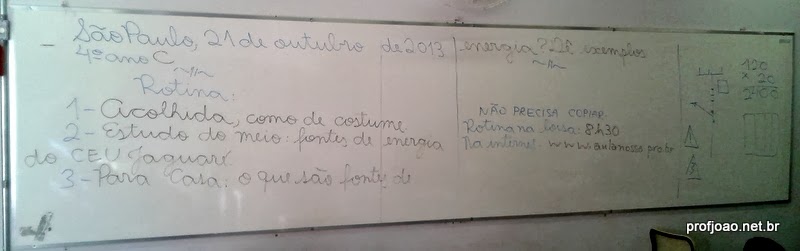 São Paulo, 21 de outubro de 2013
4º ano C
Rotina:
1- Acolhida, como de costume.
2- Estudo do meio: fontes de energia
do CEU Jaguaré.
3- Para Casa: o que são fontes de
energia? Dê exemplos
NÃO PRECISA COPIAR.
Rotina na lousa: 8h30
Na internet: www.aulanossa.pro.br
120
× 20
2400
profjoao.net.br